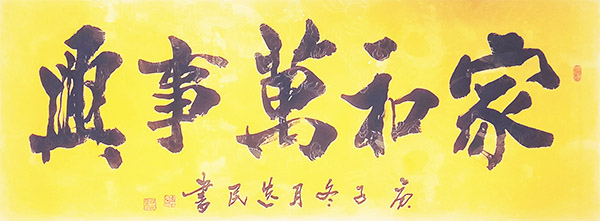 家和萬事興
庚子冬月民書